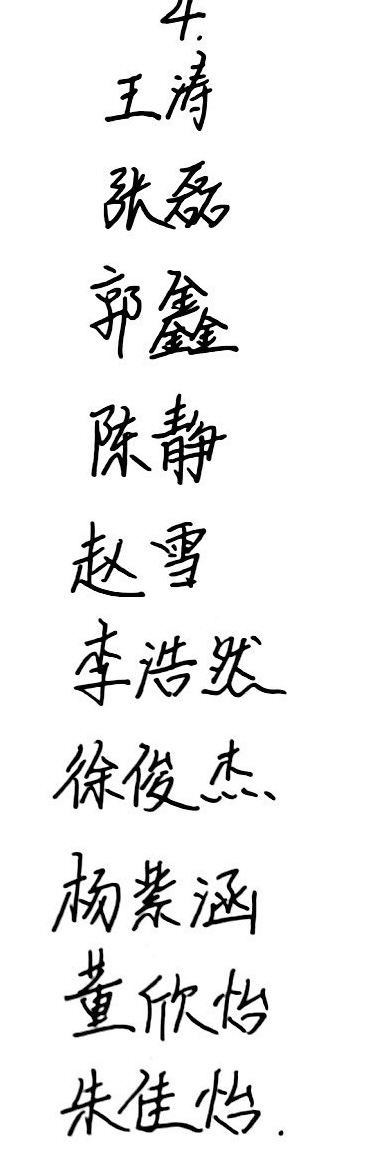 4.
王涛
张磊
郭鑫
陈静
赵雪
李浩然
徐俊杰
杨紫涵
董欣怡
朱佳怡.